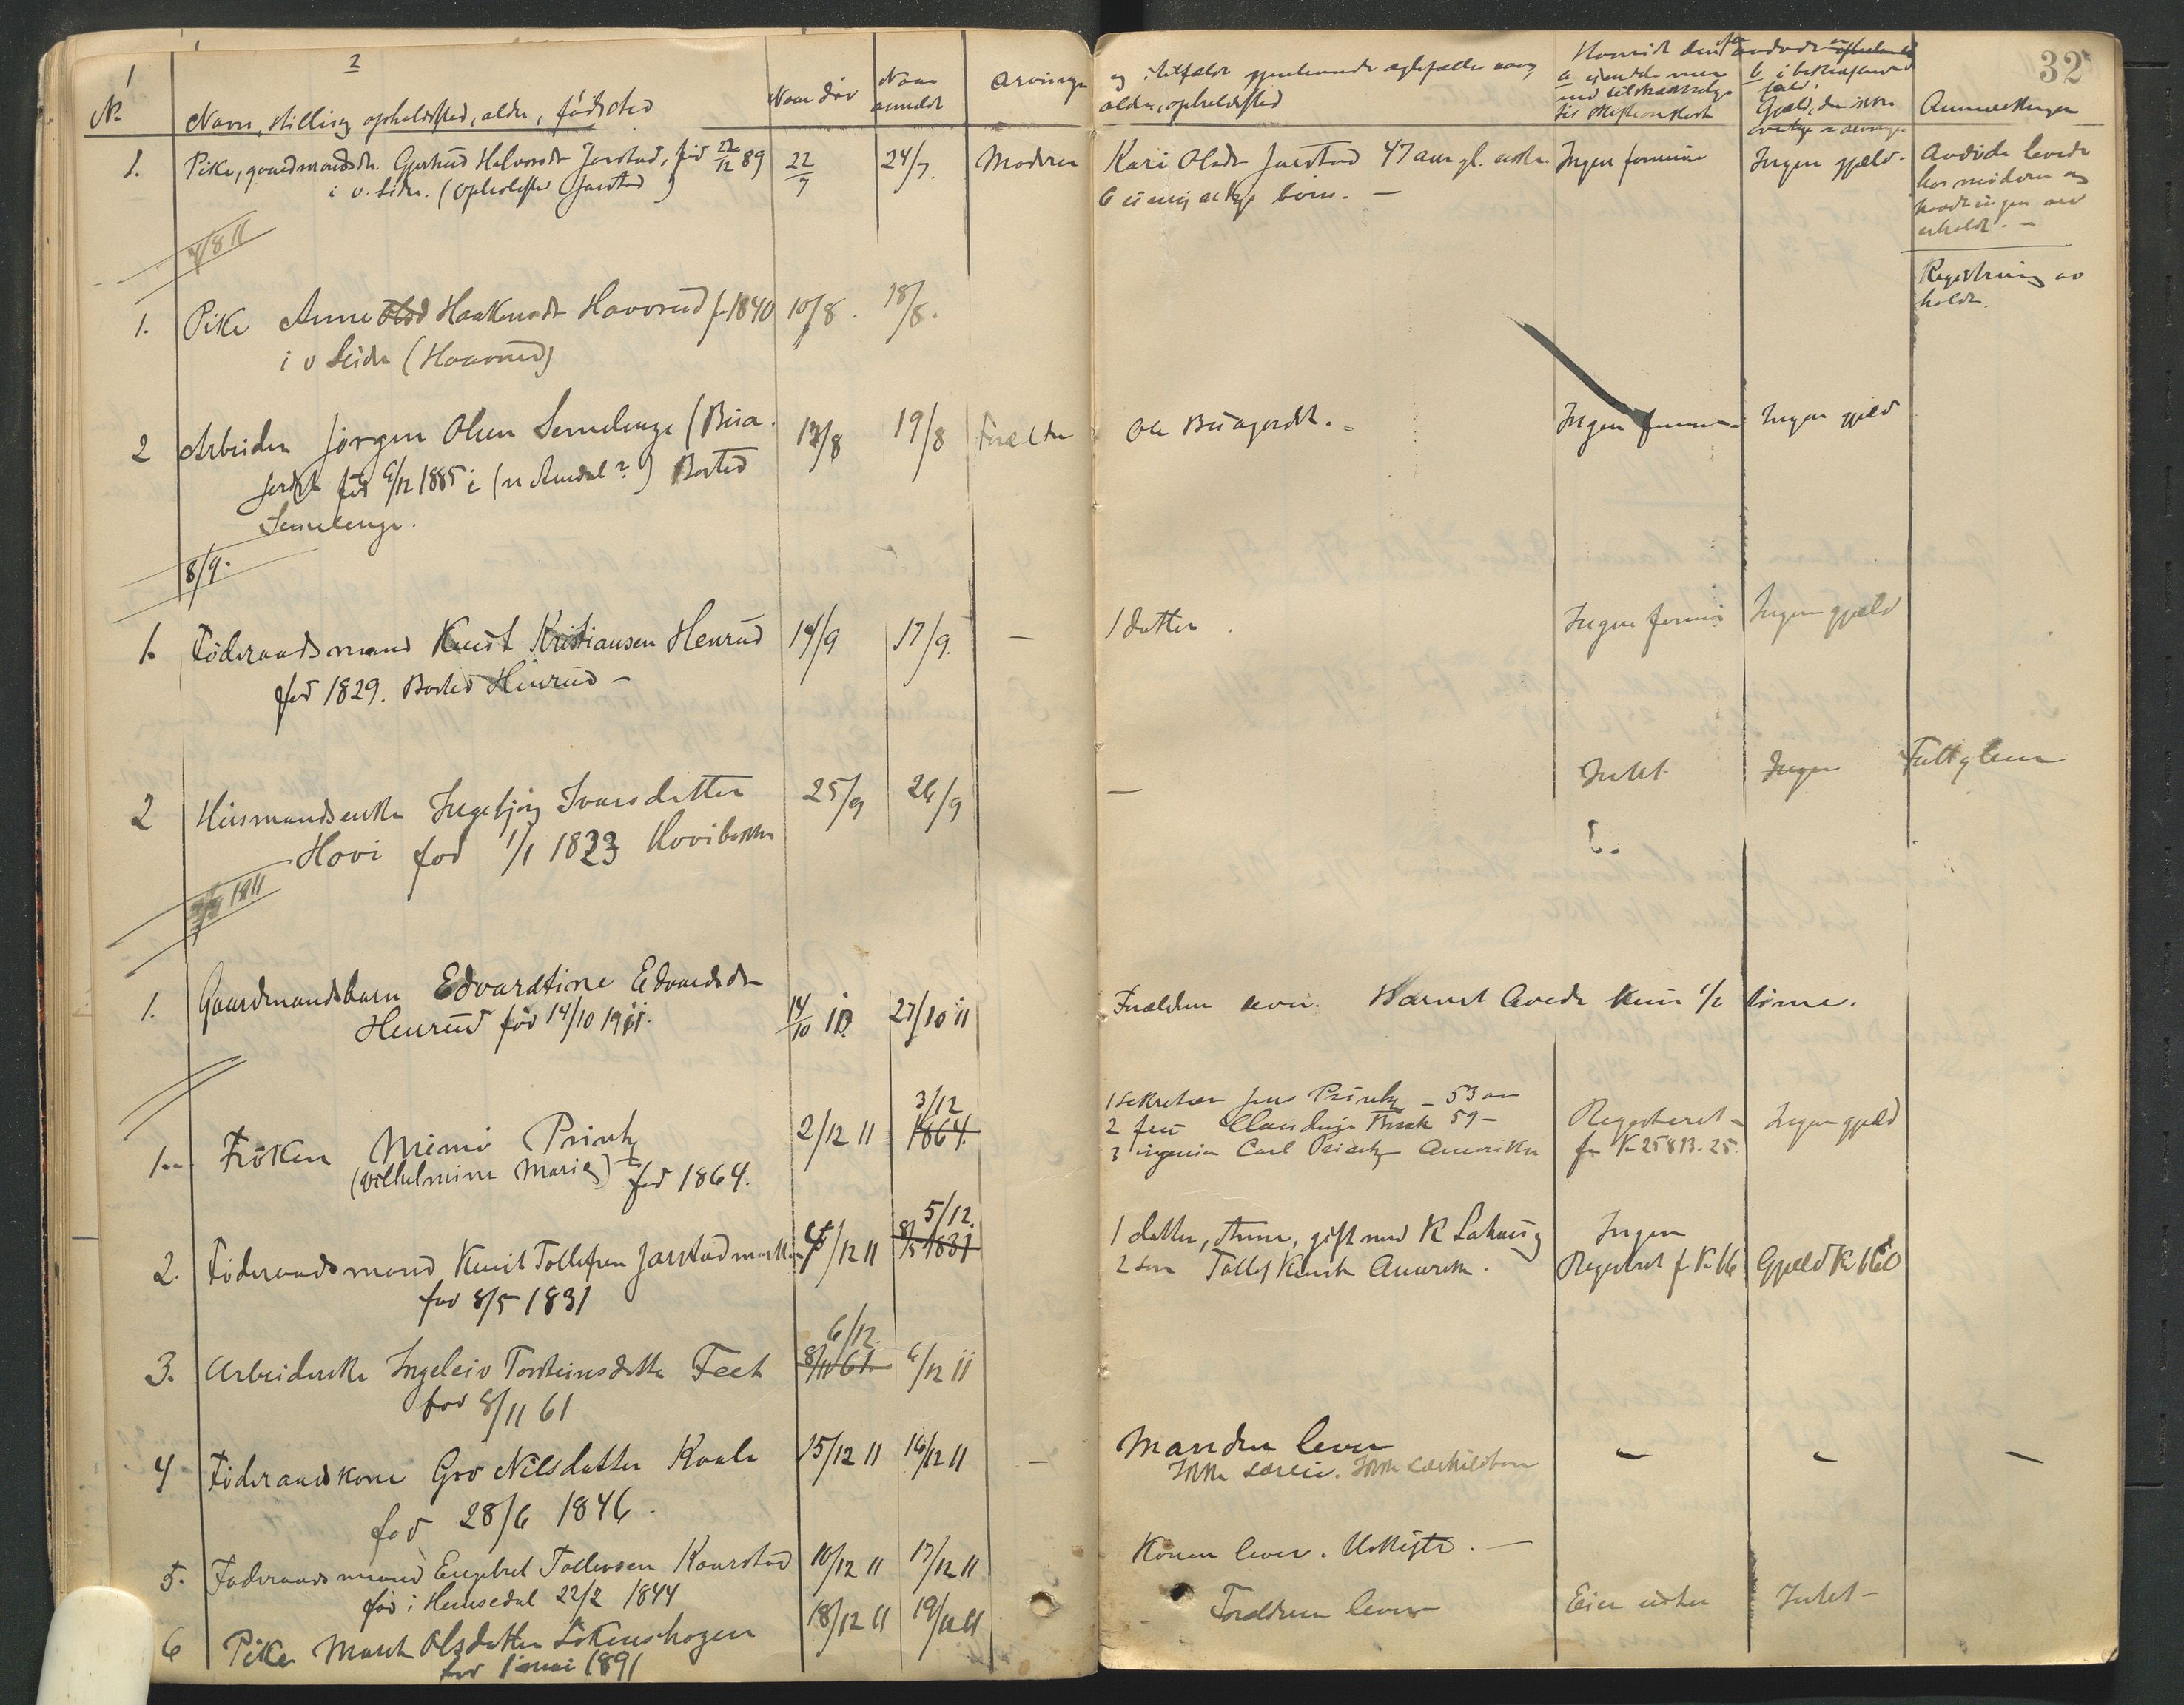 1
2
32
No
Navn, stilling opholdssted, alder, fødested
Naar død
Naar anmeldt
Arvinge
og i tilfælde gjenlevende ægtefælle navn
alder, opholdssted
Gjæld, den
Anmerkninger
1. Pike, gaardmandsdtr. Gjertrud Halvorsdtr Jarstad, född 22/12 89
i v. Slidre. (Opholdssted Jarstad)
22/7
24/7
Moderen
Kari Olsdtr Jarstad 47 aar gl. enke.
6 umyndige børn. —
Ingen formue
Ingen gjæld.
Avdøde levede
hos moderen og
ingen arv
Registrering av
holdt.
4/8 11
1. Pike Anne Haakensdtr Havrud f. 1840
i v Slidre (Haavrud)
10/8.
18/8.
2 Arbeider Jørgen Olsen Semelenge (Bua.
jordet født 6/12 1885 i (n Aurdal?) Bosted
Semelenge.
13/8
19/8
Forældre
Ole Buajordet. -
Ingen formue
Ingen gjæld
8/9.
1. Føderaadsmand Knut Kristiansen Henrud
født 1829. Bosted Henrud —
14/9
17/9.
—
1 datter.
Ingen formue
Ingen gjæld
2 Husmandsenke Ingebjørg Ivarsdatter
Hovi fød 1/1 1823 Hovibakken
25/9
26/9
—
Intet
Ingen
Fattiglem
1911
1. Gaardmandsbarn Edvardtine Edvardsdtr
Henrud fød 14/10 1911.
14/10 11.
27/10 11
Forældrene lever. Barnet levede kun 1/2 time.
1. Frøken Mimi Printz
(Vilhelmine Marie) fød 1864.
2/12 11
3/12
1864.
1 sekretær Jens Printz — 53 aar
2 fru Claudine 59 —
3 ingeniør Carl Printz Amerika
Registreret
for K 25813.25.
Ingen gjæld
2. Føderaadsmand Knut Tollefsen Jarstadmarken
fød 8/5 1831
4/12 11
5/12.
8/5 1831
1 datter, Anne, gift med K
2 søn Tollef Knutsen Amerika.
Ingen
Registreret f K 16
Gjæld K 160
3. Arbeiderske Ingeleiv Torsteinsdatter Feet
fød 8/11 61
6/12.
8/11 61
6/12 11
4 Føderaadskone Gro Nilsdatter Kvale
fød 28/6 1846.
15/12 11
16/12 11
—
Manden lever
Ikke særeie. Ikke særkuldbarn
—
—
—
5. Føderaadsmand Engebret Tollevsen Kaarstad
fød i Hemsedal 22/2 1844
10/12 11
17/12 11
Konen lever. Uskifte. —
6 Pike Marit Olsdatter Løkenshagen
fød 1 mai 1891
18/12 11
19/12 11
Forældrene lever
Eier intet
Intet —